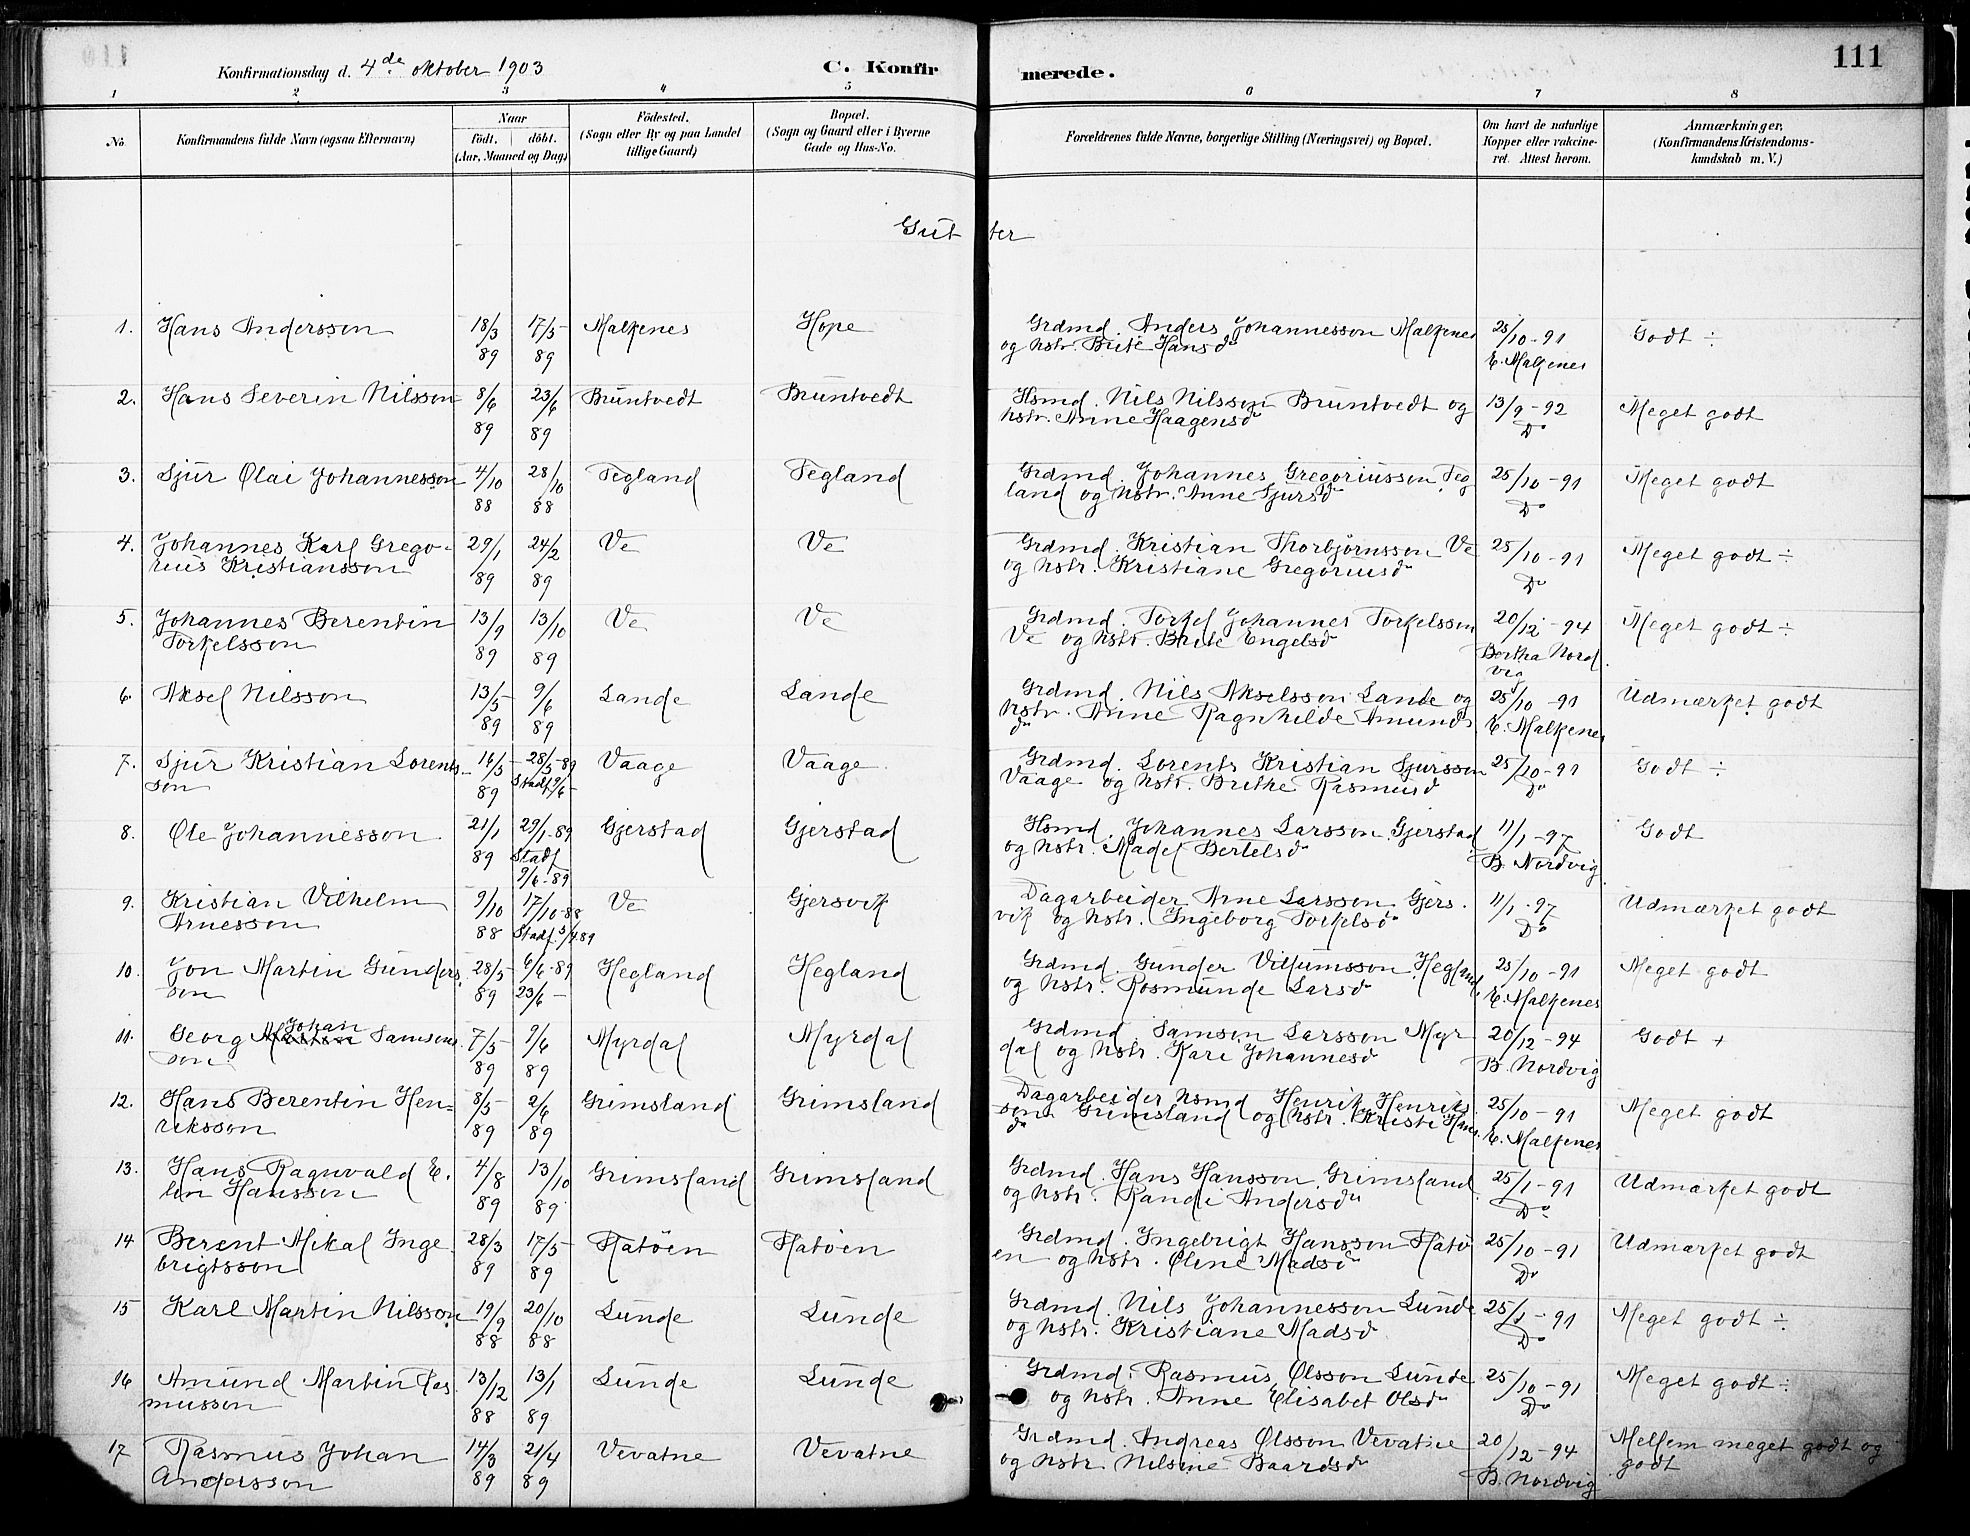 111
Konfirmationsdag d. 4de oktober 1903 C. Konfirmerede.
1 2 3 4 5 6 7 8
No. Konfirmandens fulde Navn (ogsaa Efternavn) Naar födt. döbt. (Aar, Maaned og Dag) Födested. (Sogn eller By og paa Landet tillige Gaard) Bopæl. (Sogn og Gaard eller i Byerne Gade og Hus-No. Forældrenes fulde Navne, borgerlige Stilling (Næringsvei) og Bopæl. Om havt de naturlige Kopper eller vakcineret. Attest herom. Anmærkninger, (Konfirmandens Kristendomskundskab m. V.)
Gutter
1. Hans Andersson 18/3 89 17/5 89 Malkenes Hope Grdmd. Anders Johannesson Malkenes 25/10-91 Godt ÷
og hstr. Brite Hansd E. Malkenes
2. Hans Severin Nilsson 8/6 89 23/6 89 Bruntvedt Bruntvedt Hsmd. Nils Nilsson Bruntvedt og 13/9-92 Meget godt
hstr. Anne Haagensd Do
3. Sjur Olai Johannesson 4/10 88 28/10 88 Tegland Tegland Grdmd. Johannes Gregoriusson Teg 25/10-91 Meget godt
land og hstr. Anne Sjursd Do
4. Johannes Karl Grego- 29/1 89 24/2 89 Ve Ve Grdmd. Kristian Thorbjørnsson Ve 25/10-91 Meget godt ÷
rius Kristiansson og hstr. Kristiane Gregoriusd Do
5. Johannes Berentin 13/9 89 13/10 89 Ve Ve Grdmd. Torkel Johannes Torkelsson 20/12-94 Meget godt ÷
Torkelsson Ve og hstr. Brite Engelsd Bertha Nord
vig
6. Aksel Nilsson 13/5 89 9/6 89 Lande Lande Grdmd. Nils Akselsson Lande og 25/10-91 Udmærket godt
hstr. Anne Ragnhilde Amunds E. Malkenes
d
7. Sjur Kristian Lorents 16/5 89 28/5-89 Vaage Vaage Grdmd. Lorents Kristian Sjursson 25/10-91 Godt ÷
son Stadf. 9/6 Vaage og hstr. Brithe Rasmusd Do
8. Ole Johannesson 21/1 89 29/1-89 Gjerstad Gjerstad Hsmd. Johannes Larsson Gjerstad 11/1-97 Godt
Stadf 9/6-89 og hstr. Madel Bertelsd B. Nordvig
9. Kristian Vilhelm 9/10 88 17/10-88 Ve Gjersvik Dagarbeider Arne Larsson Gjers- 11/1-97 Udmærket godt
Arnesson Stadf. 3/4 89 vik og hstr. Ingeborg Torkelsd Do
10. Jon Martin Gunders 28/5 89 6/6-89 Hegland Hegland Grdmd. Gunder Viljumsson Hegland 25/10-91 Meget godt
son 23/6 og hstr. Rosmunde Larsd E. Malkenes
11. Georg Johan Samsons 7/5 89 9/6 89 Myrdal Myrdal Grdmd. Samson Larsson Myr 20/12-94 Godt +
son dal og hstr. Kari Johannesd B. Nordvig
12. Hans Berentin Hen= 8/5 89 2/6 89 Grimsland Grimsland Dagarbeider hsmd Henrik Henriks 25/10-91 Meget godt
riksson son Grimsland og hstr. Kristi Hans E. Malkenes
d
13. Hans Ragnvald E. 4/8 89 13/10 89 Grimsland Grimsland Grdmd. Hans Hansson Grimsland 25/1-91 Udmærket godt
lin Hansson og hstr. Randi Andersd Do
14 Berent Mikal Inge 28/3 89 17/5 89 Flatöen Flatöen Grdmd. Ingebrigt Hansson Flatö 25/10-91 Udmærket godt
brigtsson en og hstr. Oline Madsd Do
15 Karl Martin Nilsson 19/9 88 20/10 88 Lunde Lunde Grdmd. Nils Johannesson Lunde 25/1-91 Meget godt ÷
og hstr. Kristiane Madsd Do
16 Amund Martin Ras 13/12 88 13/1 89 Lunde Lunde Grdmd. Rasmus Olsson Lunde 25/10-91 Meget godt ÷
musson og hstr. Anne Elisabet Olsd Do
17 Rasmus Johan 14/3 89 21/4 89 Vevatne Vevatne Grdmd. Andreas Olsson Vevatne 20/12-94 Mellem meget godt og
Andersson og hstr Nilsine Baardsd B. Nordvig godt